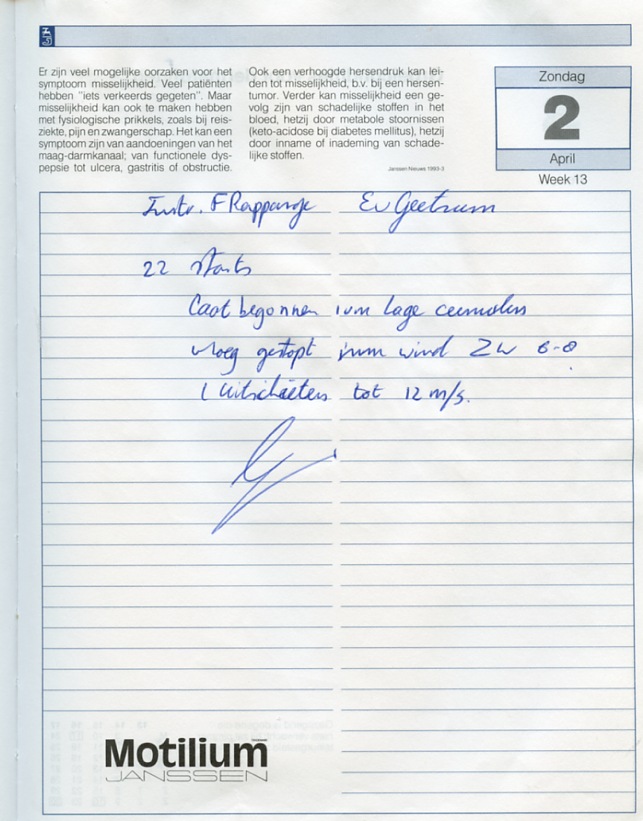 Er zijn veel mogelijke oorzaken voor het
symptoom misselijkheid. Veel patiënten
hebben "iets verkeerds gegeten". Maar
misselijkheid kan ook te maken hebben
met fysiologische prikkels, zoals bij reis-
ziekte, pijn en zwangerschap. Het kan een
symptoom zijn van aandoeningen van het
maag-darmkanaal; van functionele dys-
pepsie tot ulcera, gastritis of obstructie.
Ook een verhoogde hersendruk kan lei-
den tot misselijkheid, b.v. bij een hersen-
tumor. Verder kan misselijkheid een ge-
volg zijn van schadelijke stoffen in het
bloed, hetzij door metabole stoornissen
(keto-acidose bij diabetes mellitus), hetzij
door inname of inademing van schade-
lijke stoffen.
Janssen Nieuws 1993-3
Zondag
2
April
Week 13
Instr. F Rappange Ev Geetrum
22 starts
Laat begonnen ivm lage
vroeg gestopt ivm wind ZW 6-8
Uitschieters tot 12 m/s.
Motilium
JANSSEN